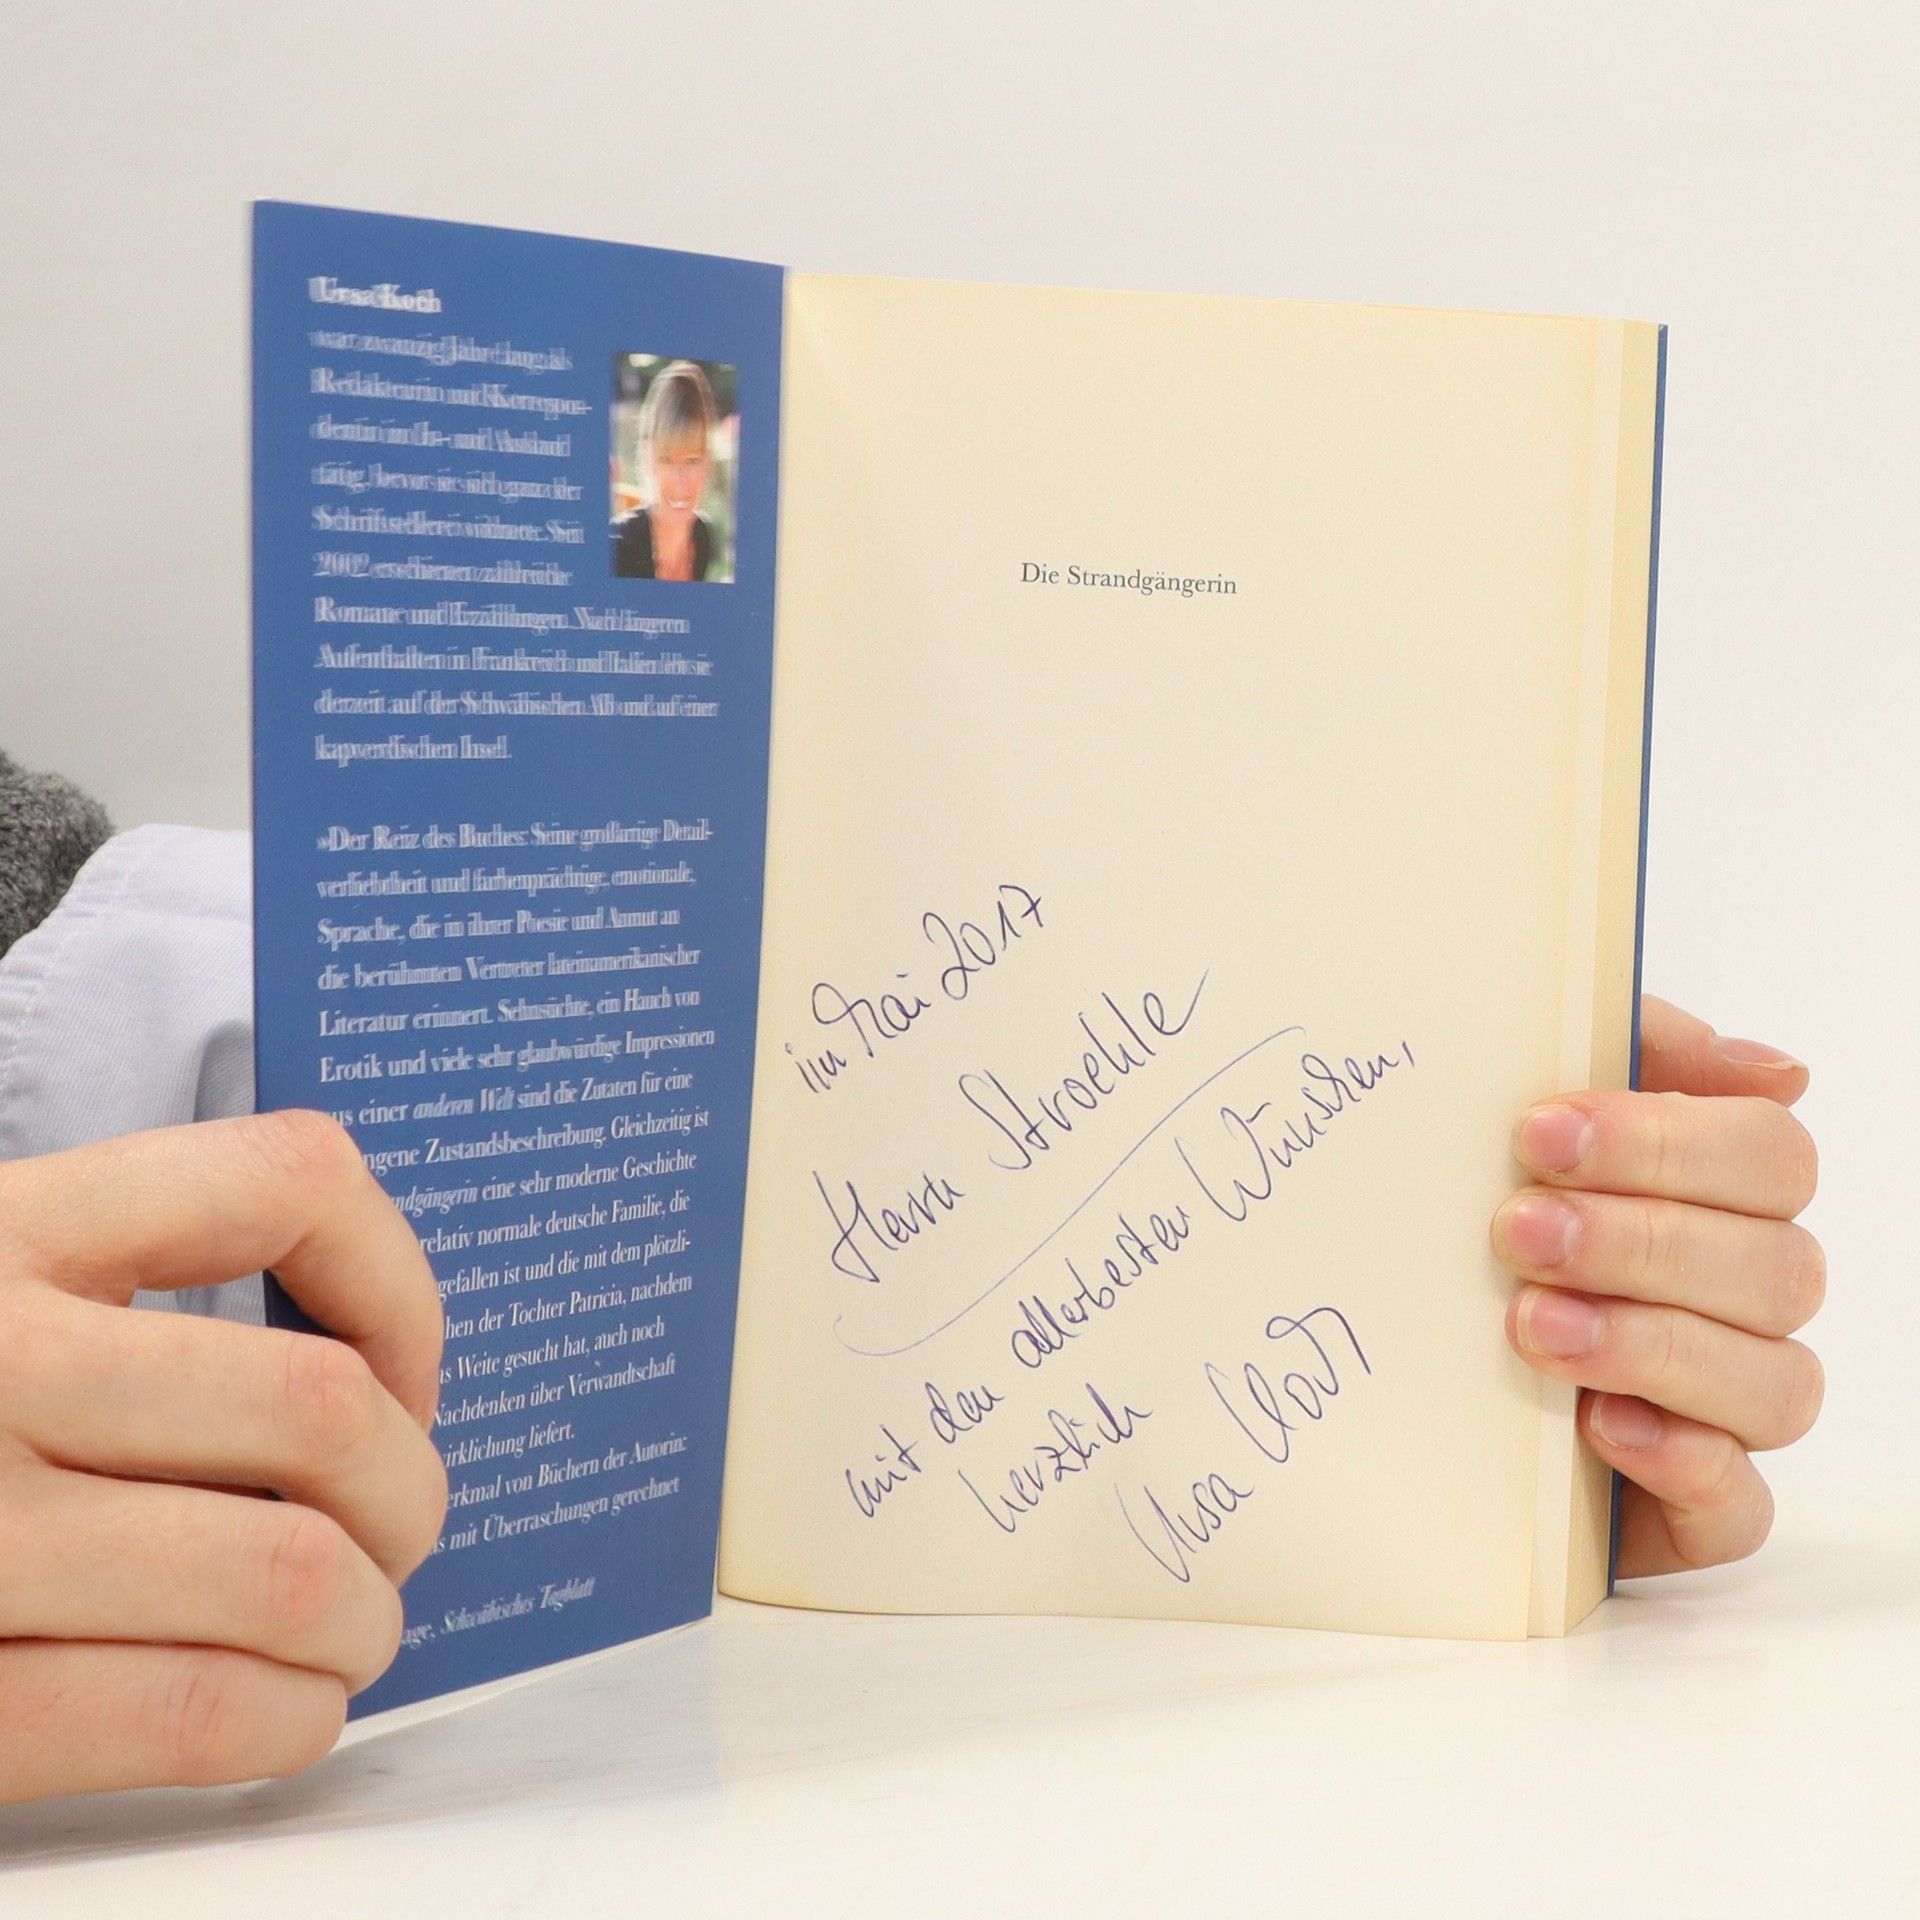 Ursa Koch
war zwanzig Jahre lang als
Redakteurin und Korrespon-
dentin im In- und Ausland
tätig, bevor sie sich ganz der
Schriftstellerei widmete. Seit
2002 erschienen zahlreiche
Romane und Erzählungen. Nach längeren
Aufenthalten in Frankreich und Italien lebt sie
derzeit auf der Schwäbischen Alb und auf einer
kapverdischen Insel.
»Der Reiz des Buches: Seine großartige Detail-
verliebtheit und farbenprächtige, emotionale,
Sprache, die in ihrer Poesie und Anmut an
die berühmten Vertreter lateinamerikanischer
Literatur erinnert. Sehnsüchte, ein Hauch von
Erotik und viele sehr glaubwürdige Impressionen
us einer anderen Welt sind die Zutaten für eine
ngene Zustandsbeschreibung. Gleichzeitig ist
ndgängerin eine sehr moderne Geschichte
relativ normale deutsche Familie, die
gefallen ist und die mit dem plötzli-
hen der Tochter Patricia, nachdem
s Weite gesucht hat, auch noch
Nachdenken über Verwandtschaft
irklichung liefert.
erkmal von Büchern der Autorin:
s mit Überraschungen gerechnet
age, Schwäbisches Tagblatt
Die Strandgängerin
im Mai 2017
Herrn Stroehle
mit den allerbesten Wünschen,
herzlich
Ursa Koch